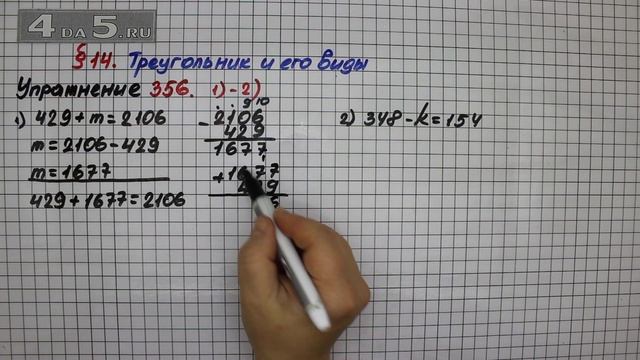 4 DA 5.RU
§ 14. Треугольник и его виды
Упражнение 356. 1)-2)
1) 429 + m = 2106
m = 2106 - 429
m = 1677
429 + 1677 = 2106
9 10
- 2106
429
1677
1
+ 1677
2) 348 - k = 154